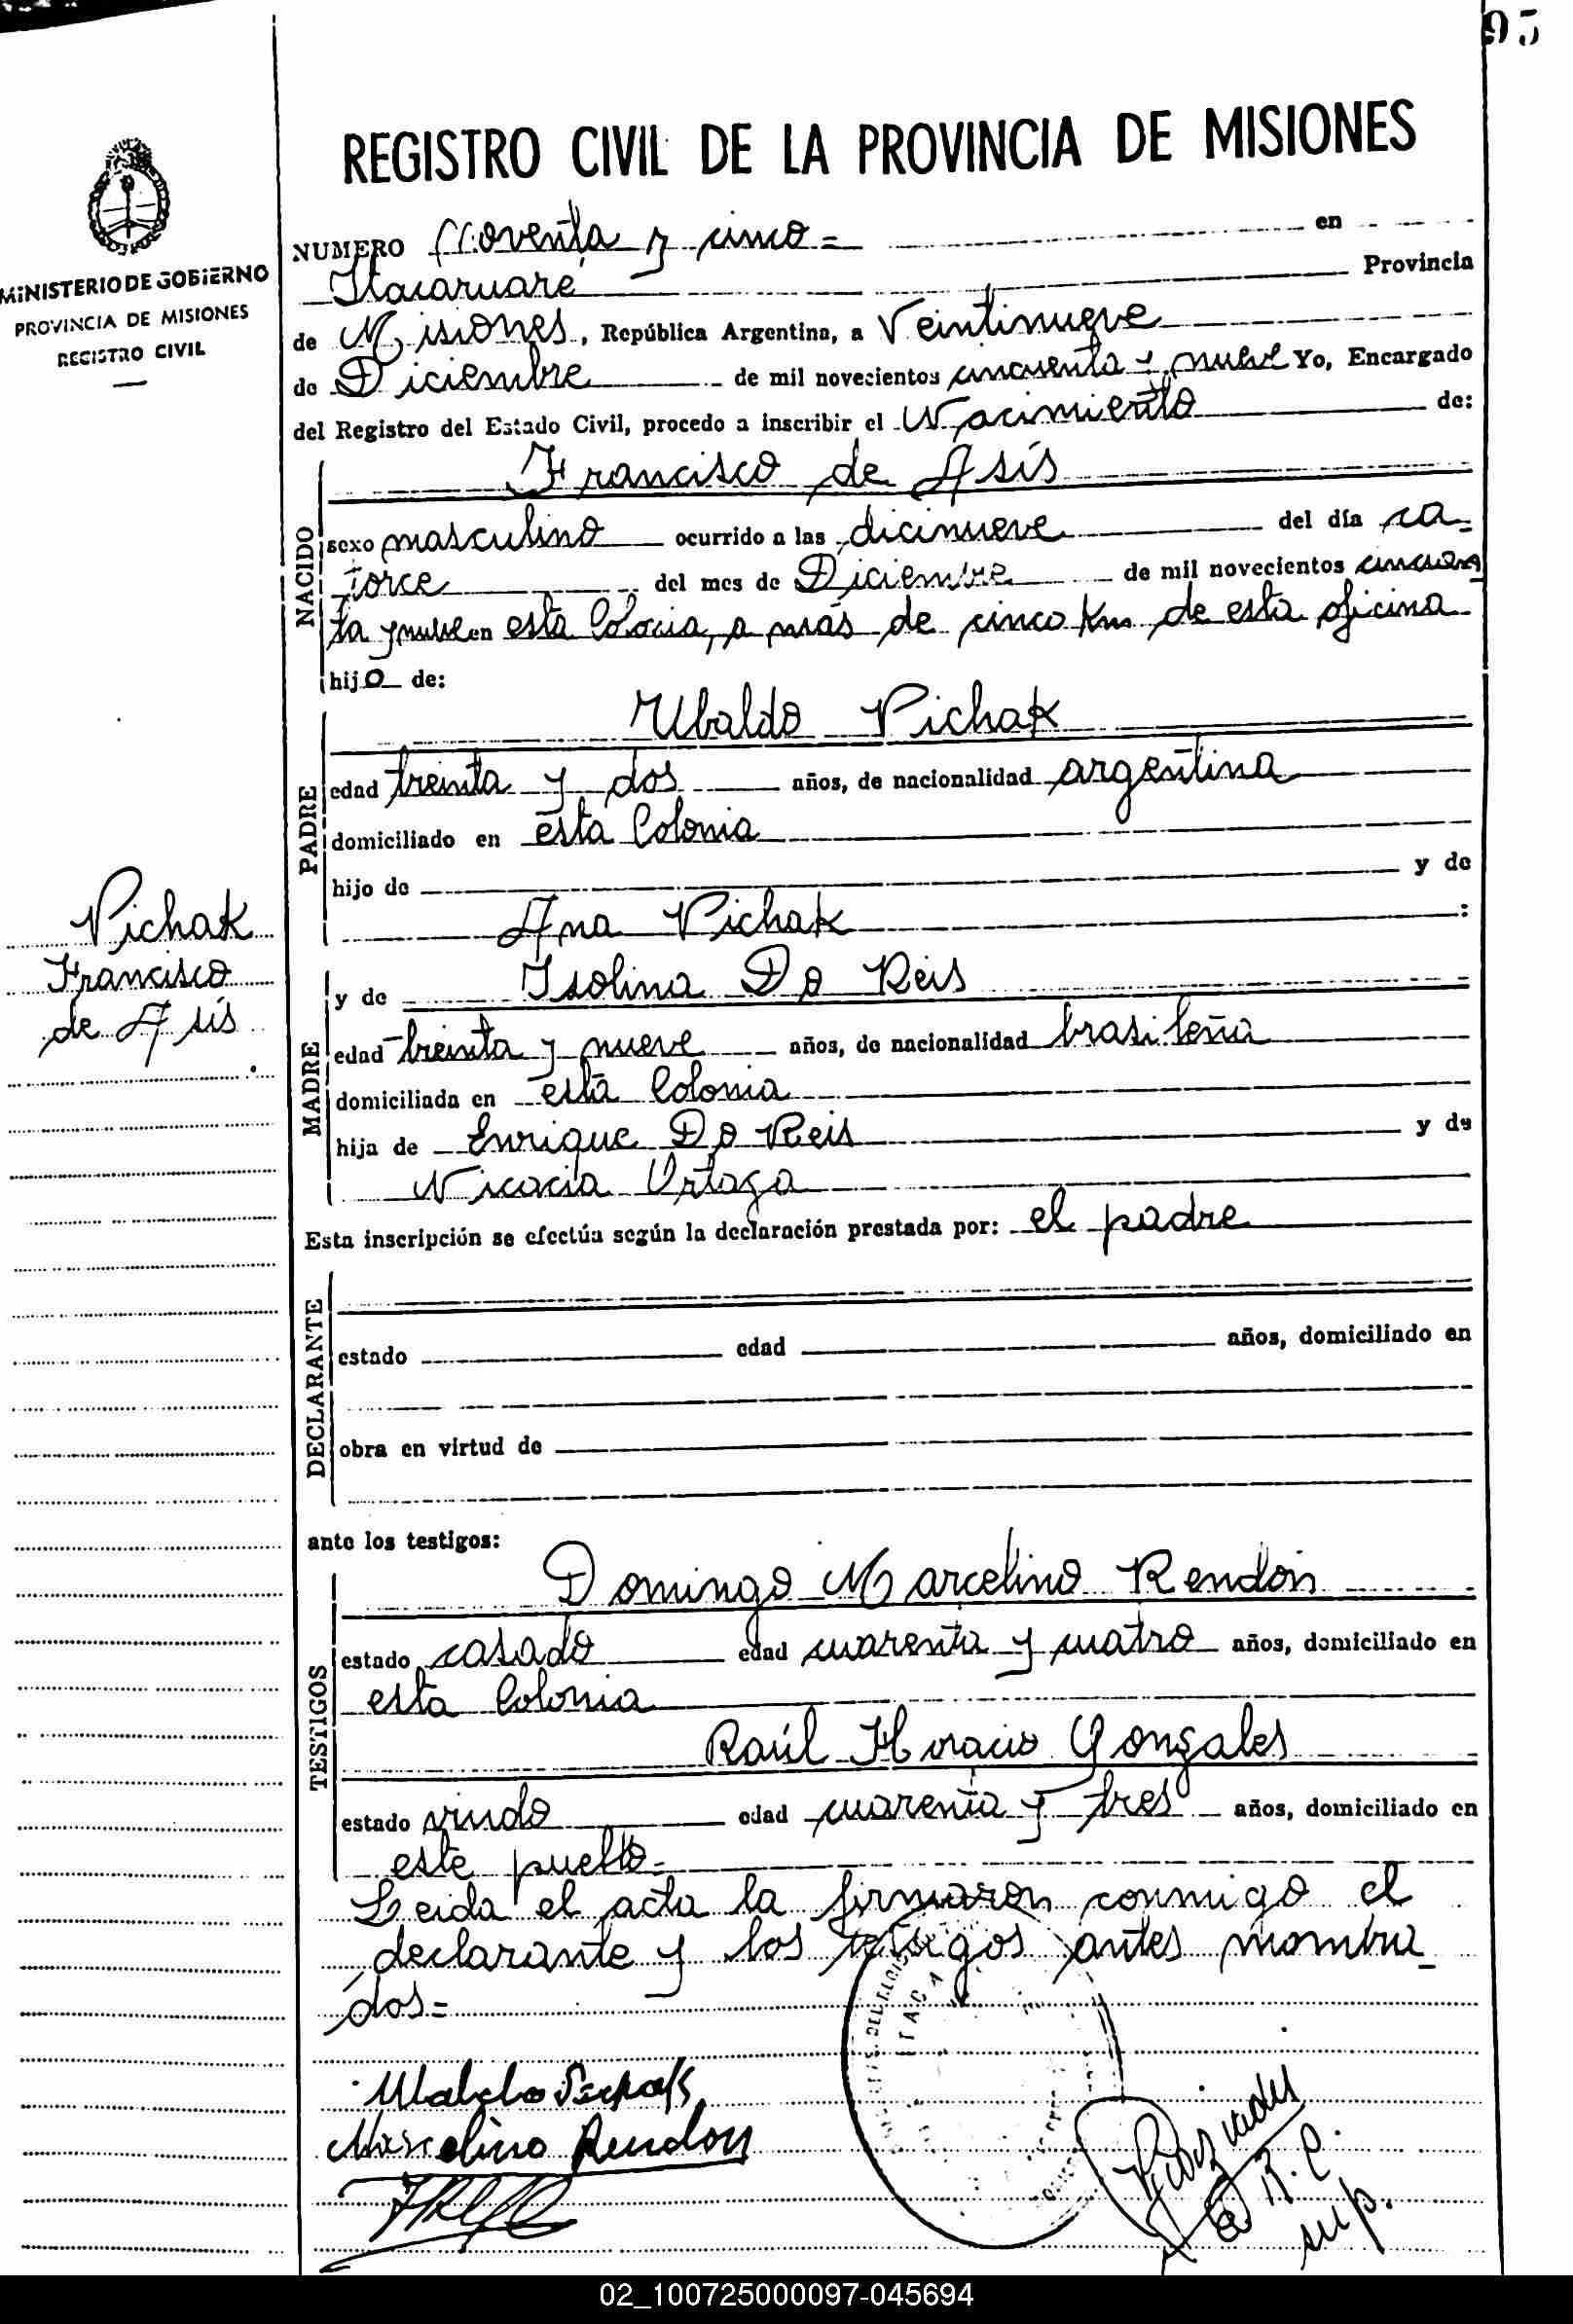 95
REGISTRO CIVIL DE LA PROVINCIA DE MISIONES
MINISTERIO DE GOBIERNO
PROVINCIA DE MISIONES
REGISTRO CIVIL
NUMERO Noventa y cinco= en
Itacaruaré Provincia
de Misiones, República Argentina, a Veintinueve
de Diciembre de mil novecientos cincuenta y nueve Yo, Encargado
del Registro del Estado Civil, procedo a inscribir el Nacimiento de:
NACIDO
Francisco de Asís
sexo masculino ocurrido a las dicinueve del día ca-
torce del mes de Diciembre de mil novecientos cincuen
ta y nueve en esta Colonia, a más de cinco Km de esta oficina
hijo de:
PADRE
Ubaldo Pichak
edad treinta y dos años, de nacionalidad argentina
domiciliado en esta Colonia
hijo de y de
Ana Pichak :
Pichak
Francisco
de Asís
MADRE
y de Isolina Do Reis
edad treinta y nueve años, de nacionalidad brasileña
domiciliada en esta Colonia
hija de Enrique Do Reis y de
Nicacia Ortaga
Esta inscripción se efectúa según la declaración prestada por: el padre
DECLARANTE
estado edad años, domiciliado en
obra en virtud de
ante los testigos:
TESTIGOS
Domingo Marcelino Rendón
estado casado edad cuarenta y cuatro años, domiciliado en
esta Colonia
Raúl Horacio Gonzales
estado viudo edad cuarenta y tres años, domiciliado en
este pueblo=
Leida el acta la firmaron conmigo el
declarante y los testigos antes nombra-
dos=
Ubaldo Pichak
Marcelino Rendon
R.C.
sup.
02_100725000097-045694